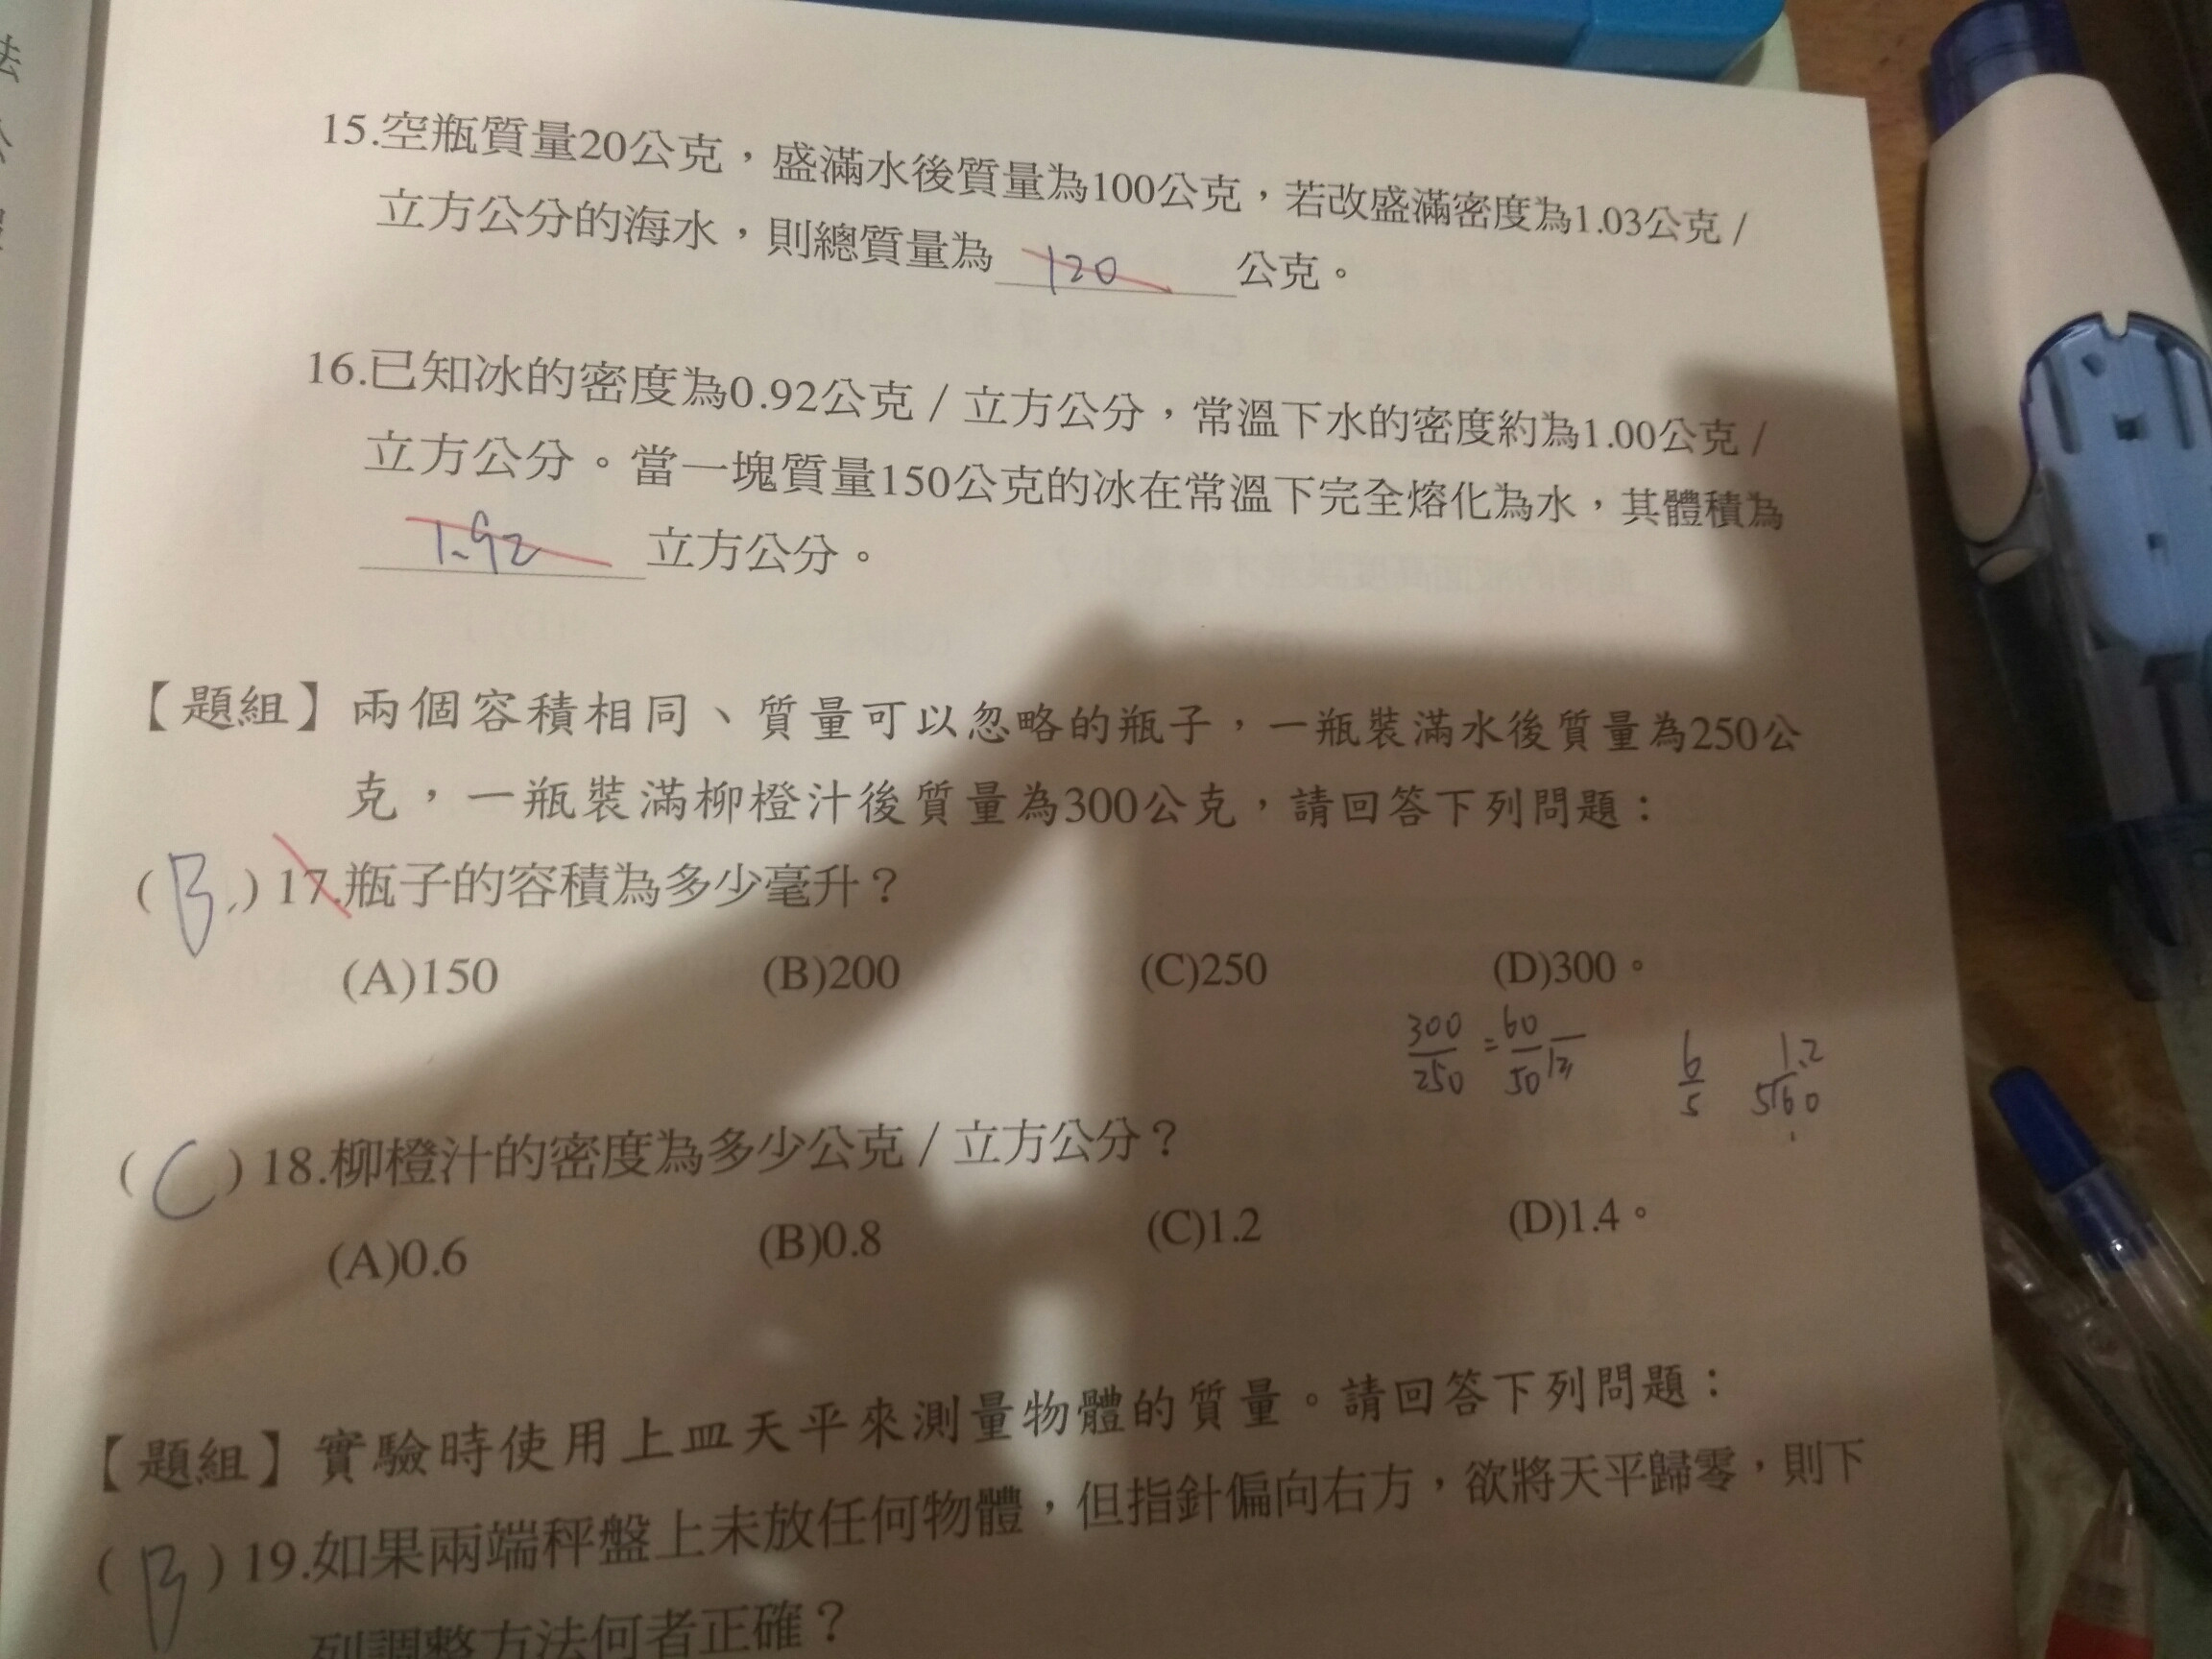 法
15.空瓶質量20公克，盛滿水後質量為100公克，若改盛滿密度為1.03公克/
立方公分的海水，則總質量為 120 公克。
16.已知冰的密度為0.92公克/立方公分，常溫下水的密度約為1.00公克/
立方公分。當一塊質量150公克的冰在常溫下完全熔化為水，其體積為
1.92 立方公分。
【題組】兩個容積相同、質量可以忽略的瓶子，一瓶裝滿水後質量為250公
克，一瓶裝滿柳橙汁後質量為300公克，請回答下列問題：
(B) 17.瓶子的容積為多少毫升？
(A)150 (B)200 (C)250 (D)300。
300/250 = 60/50 6/5 1.2
5 60
(C) 18.柳橙汁的密度為多少公克/立方公分？
(A)0.6 (B)0.8 (C)1.2 (D)1.4。
【題組】實驗時使用上皿天平來測量物體的質量。請回答下列問題：
(B) 19.如果兩端秤盤上未放任何物體，但指針偏向右方，欲將天平歸零，則下
列調整方法何者正確？